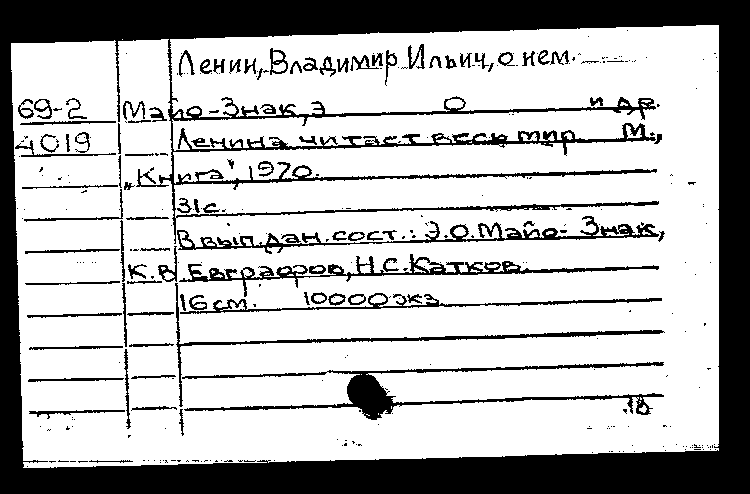 Ленин, Владимир Ильич, о нем.
69-2 Майо-Знак, Э О и др.
4019 Ленина читает весь мир М.,
„Книга", 1970.
31с.
В вып. дан. сост.: Э.О. Майо-Знак,
К.В Евграфов, Н.С. Катков.
16 см. 10000 экз